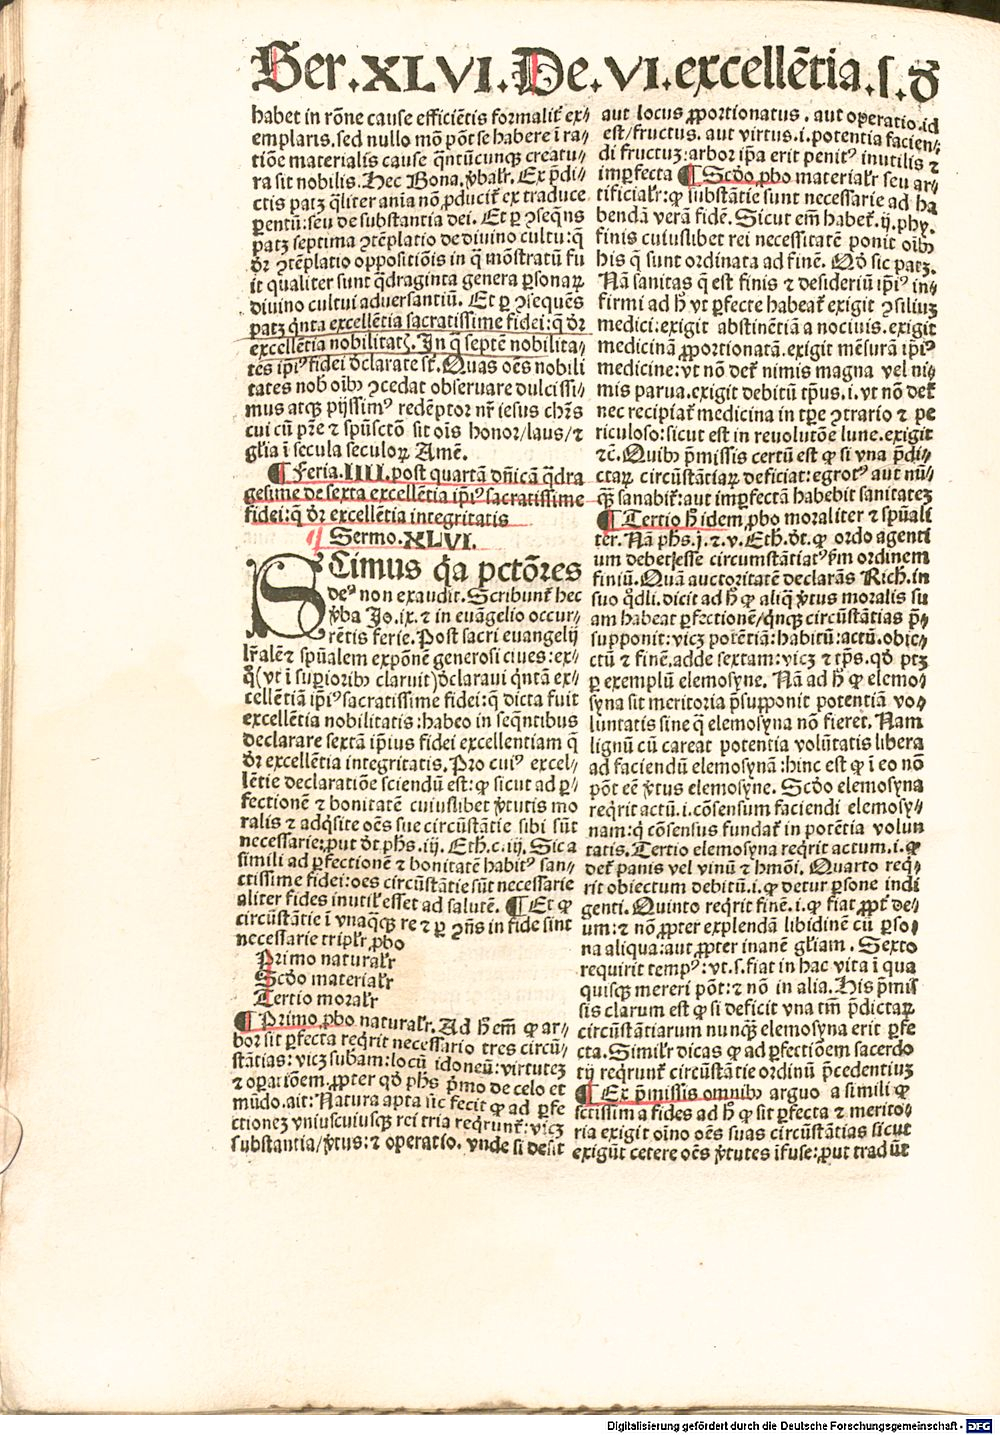 Ser.XLVI.De.VI.excellētia.ſ.ꝺ̄
habet in rōne cause efficiētis formalit᷑ ex⸗
emplaris.sed nullo mō pōt se habere ī ra⸗
tiōe materialis cause q̄ntūcunqꝫ creatu⸗
ra sit nobilis.Hec Bona.ꝟbalr̄. Ex p̄di⸗
ctis patꝫ qͣliter anīa nō ꝓducit᷑ ex traduce
ꝑentū:seu de substantia dei. Et ꝑ ꝯseqn̄s
patꝫ septima ꝯtēplatio de diuino cultu:q̄
dr̄ ꝯtēplatio oppositiōis in q̄ mōstratū fu
it qualiter sunt qͣdraginta genera ꝑsonaꝝ
diuino cultui aduersantiū. Et ꝑ ꝯsequēs
patꝫ qͥnta excellētia sacratissime fidei:q̄ dr̄
excellētia nobilitatꝭ. In q̄ septē nobilita⸗
tes ip̄iꝰ fidei dclarate st̄. Quas oēs nobili
tates nobꝭ oībꝫ ꝯcedat obseruare dulcissi⸗
mus atqꝫ pijssimꝰ redēptor nr̄ iesus chr̄s
cui cū pr̄e ⁊ spūsctō sit oīs honor/laus/⁊
gl̄ia ī secula seculoꝝ Amē.
¶ Feria.IIII.post quartā dn̄icā qͣdra
gesime de sexta excellētia ip̄iꝰ sacratissime
fidei:q̄ dr̄ excellētia integritatis
¶ Sermo.XLVI.
SCimus qͥa pctōres
deꝰ non exaudit. Scribunt᷑ hec
ꝟba Jo.ix.⁊ in euāgelio occur⸗
rētis ferie. Post sacri euangelij
lr̄alē ⁊ spūalem expōnē generosi ciues:ex⸗
qͦ(vt ī superioribꝫ claruit)declaraui qͥntā ex⸗
cellētiā ip̄iꝰ sacratissime fidei:q̄ dicta fuit
excellētia nobilitatis:habeo in seqn̄tibus
declarare sextā ip̄ius fidei excellentiam q̄
dr̄ excellētia integritatis. Pro cuiꝰ excel⸗
lētie declaratiōe sciendū est:ꝙ sicut ad ꝑ⸗
fectionē ⁊ bonitatē cuiuslibet ꝟtutis mo
ralis ⁊ adqͥsite oēs sue circūstātie sibi sūt
necessarie:ꝓut dt̄ phs.iij. Eth.c.iij. Sic a
simili ad ꝑfectionē ⁊ bonitatē habitꝰ san⸗
ctissime fidei:oēs circūstātie sūt necessarie
aliter fides inutil᷑ esset ad salutē. ¶ Et ꝙ
circūstātie ī vnaq̄qꝫ re ⁊ ꝑ ꝯn̄s in fide sint
necessarie triplr̄ ꝓbo
Primo naturalr̄
Scdo materialr̄
Tertio moralr̄
¶ Primo ꝓbo naturalr̄. Ad hͦ em̄ ꝙ ar⸗
bor sit ꝑfecta reqͥrit necessario tres circū⸗
stātias:vicꝫ subam:locū idoneū:virtutez
⁊ opatiōem.ꝓpter qd̓ phs pͥmo de celo et
mūdo.ait:Natura apta nic̄ fecit ꝙ ad ꝑfe
ctionez vniuscuiusqꝫ rei tria reqͥrunt᷑:vicꝫ
substantia/ꝟtus:⁊ operatio. vnde si desit
aut locus ꝓportionatus. aut operatio.id
est/fructus. aut virtus.i.potentia facien⸗
di fructuꝫ:arbor ip̄a erit penitꝰ inutilis ⁊
imꝑfecta ¶ Scdo ꝓbo materialr̄ seu ar⸗
tificialr̄:ꝙ substātie sunt necessarie ad ha
bendā verā fidē. Sicut em̄ habet᷑.ij.phy.
finis cuiuslibet rei necessitatē ponit oībꝫ
his q̄ sunt ordinata ad finē. Qd̓ sic patꝫ.
Nā sanitas q̄ est finis ⁊ desideriū ip̄iꝰ in⸗
firmi ad hͦ vt ꝑfecte habeat᷑ exigit ꝯsiliuꝫ
medici:exigit abstinētiā a nociuis.exigit
medicinā ꝓportionatā.exigit mēsurā ip̄iꝰ
medicine:vt nō det᷑ nimis magna vel ni⸗
mis parua.exigit debitū tp̄us.i.vt nō det᷑
nec recipiat᷑ medicina in tp̄e ꝯtrario ⁊ pe
riculoso:sicut est in reuolutōe lune.exigit
⁊c. Quibꝫ p̄missis certū est ꝙ si vna p̄di⸗
ctaꝝ circūstātiaꝝ deficiat:egrotꝰ aut nū⸗
qͣꝫ sanabit᷑:aut imꝑfectā habebit sanitatez
¶ Tertio hͦ idem ꝓbo moraliter ⁊ spūali
ter. Nā phs.j.⁊.v. Eth.dt̄.ꝙ ordo agenti
um debet esse circumstātiatꝰ ẜm ordinem
finiū. Quā auctoritatē declarās Rich.in
suo qͦdli.dicit ad hͦ ꝙ aliqͣ ꝟtus moralis su
am habeat ꝑfectionē/qͥncꝫ circūstātias p̄⸗
supponit:vicꝫ potētiā:habitū:actū.obie⸗
ctū ⁊ finē.adde sextam:vicꝫ ⁊ tp̄s.qd̓ ptꝫ
ꝑ exemplū elemosyne. Nā ad hͦ ꝙ elemo⸗
syna sit meritoria p̄supponit potentiā vo⸗
luntatis sine q̄ elemosyna nō fieret. Nam
lignū cū careat potentia volūtatis libera
ad faciendū elemosynā:hinc est ꝙ ī eo nō
pōt eē ꝟtus elemosyne. Scdo elemosyna
reqͥrit actū.i.cōsensum faciendi elemosy⸗
nam:qͥ cōsensus fundat᷑ in potētia volun
tatis. Tertio elemosyna reqͥrit actum.i.ꝙ
det᷑ panis vel vinū ⁊ hmōi. Quarto reqͥ⸗
rit obiectum debitū.i.ꝙ detur ꝑsone indi
genti. Quinto reqͥrit finē.i.ꝙ fiat ꝓpt᷑ de⸗
um:⁊ nō ꝓpter explendā libidinē cū ꝑso⸗
na aliqua:aut ꝓpter inanē gl̄iam. Sexto
requirit tempꝰ:vt.s.fiat in hac vita ī qua
quisqꝫ mereri pōt:⁊ nō in alia. His p̄mis
sis clarum est ꝙ si deficit vna tm̄ p̄dictaꝝ
circūstātiarum nunqͣꝫ elemosyna erit ꝑfe
cta. Similr̄ dicas ꝙ ad ꝑfectiōem sacerdo
tij reqͥrunt᷑ circūstātie ordinū p̄cedentiuꝫ
¶ Ex p̄missis omnibꝫ arguo a simili ꝙ
sctissima fides ad hͦ ꝙ sit ꝑfecta ⁊ merito⸗
ria exigit oīno oēs suas circūstātias sicut
exigūt cetere oēs ꝟtutes īfuse:ꝓut tradūt
Digitalisierung gefördert durch die Deutsche Forschungsgemeinschaft - DFG